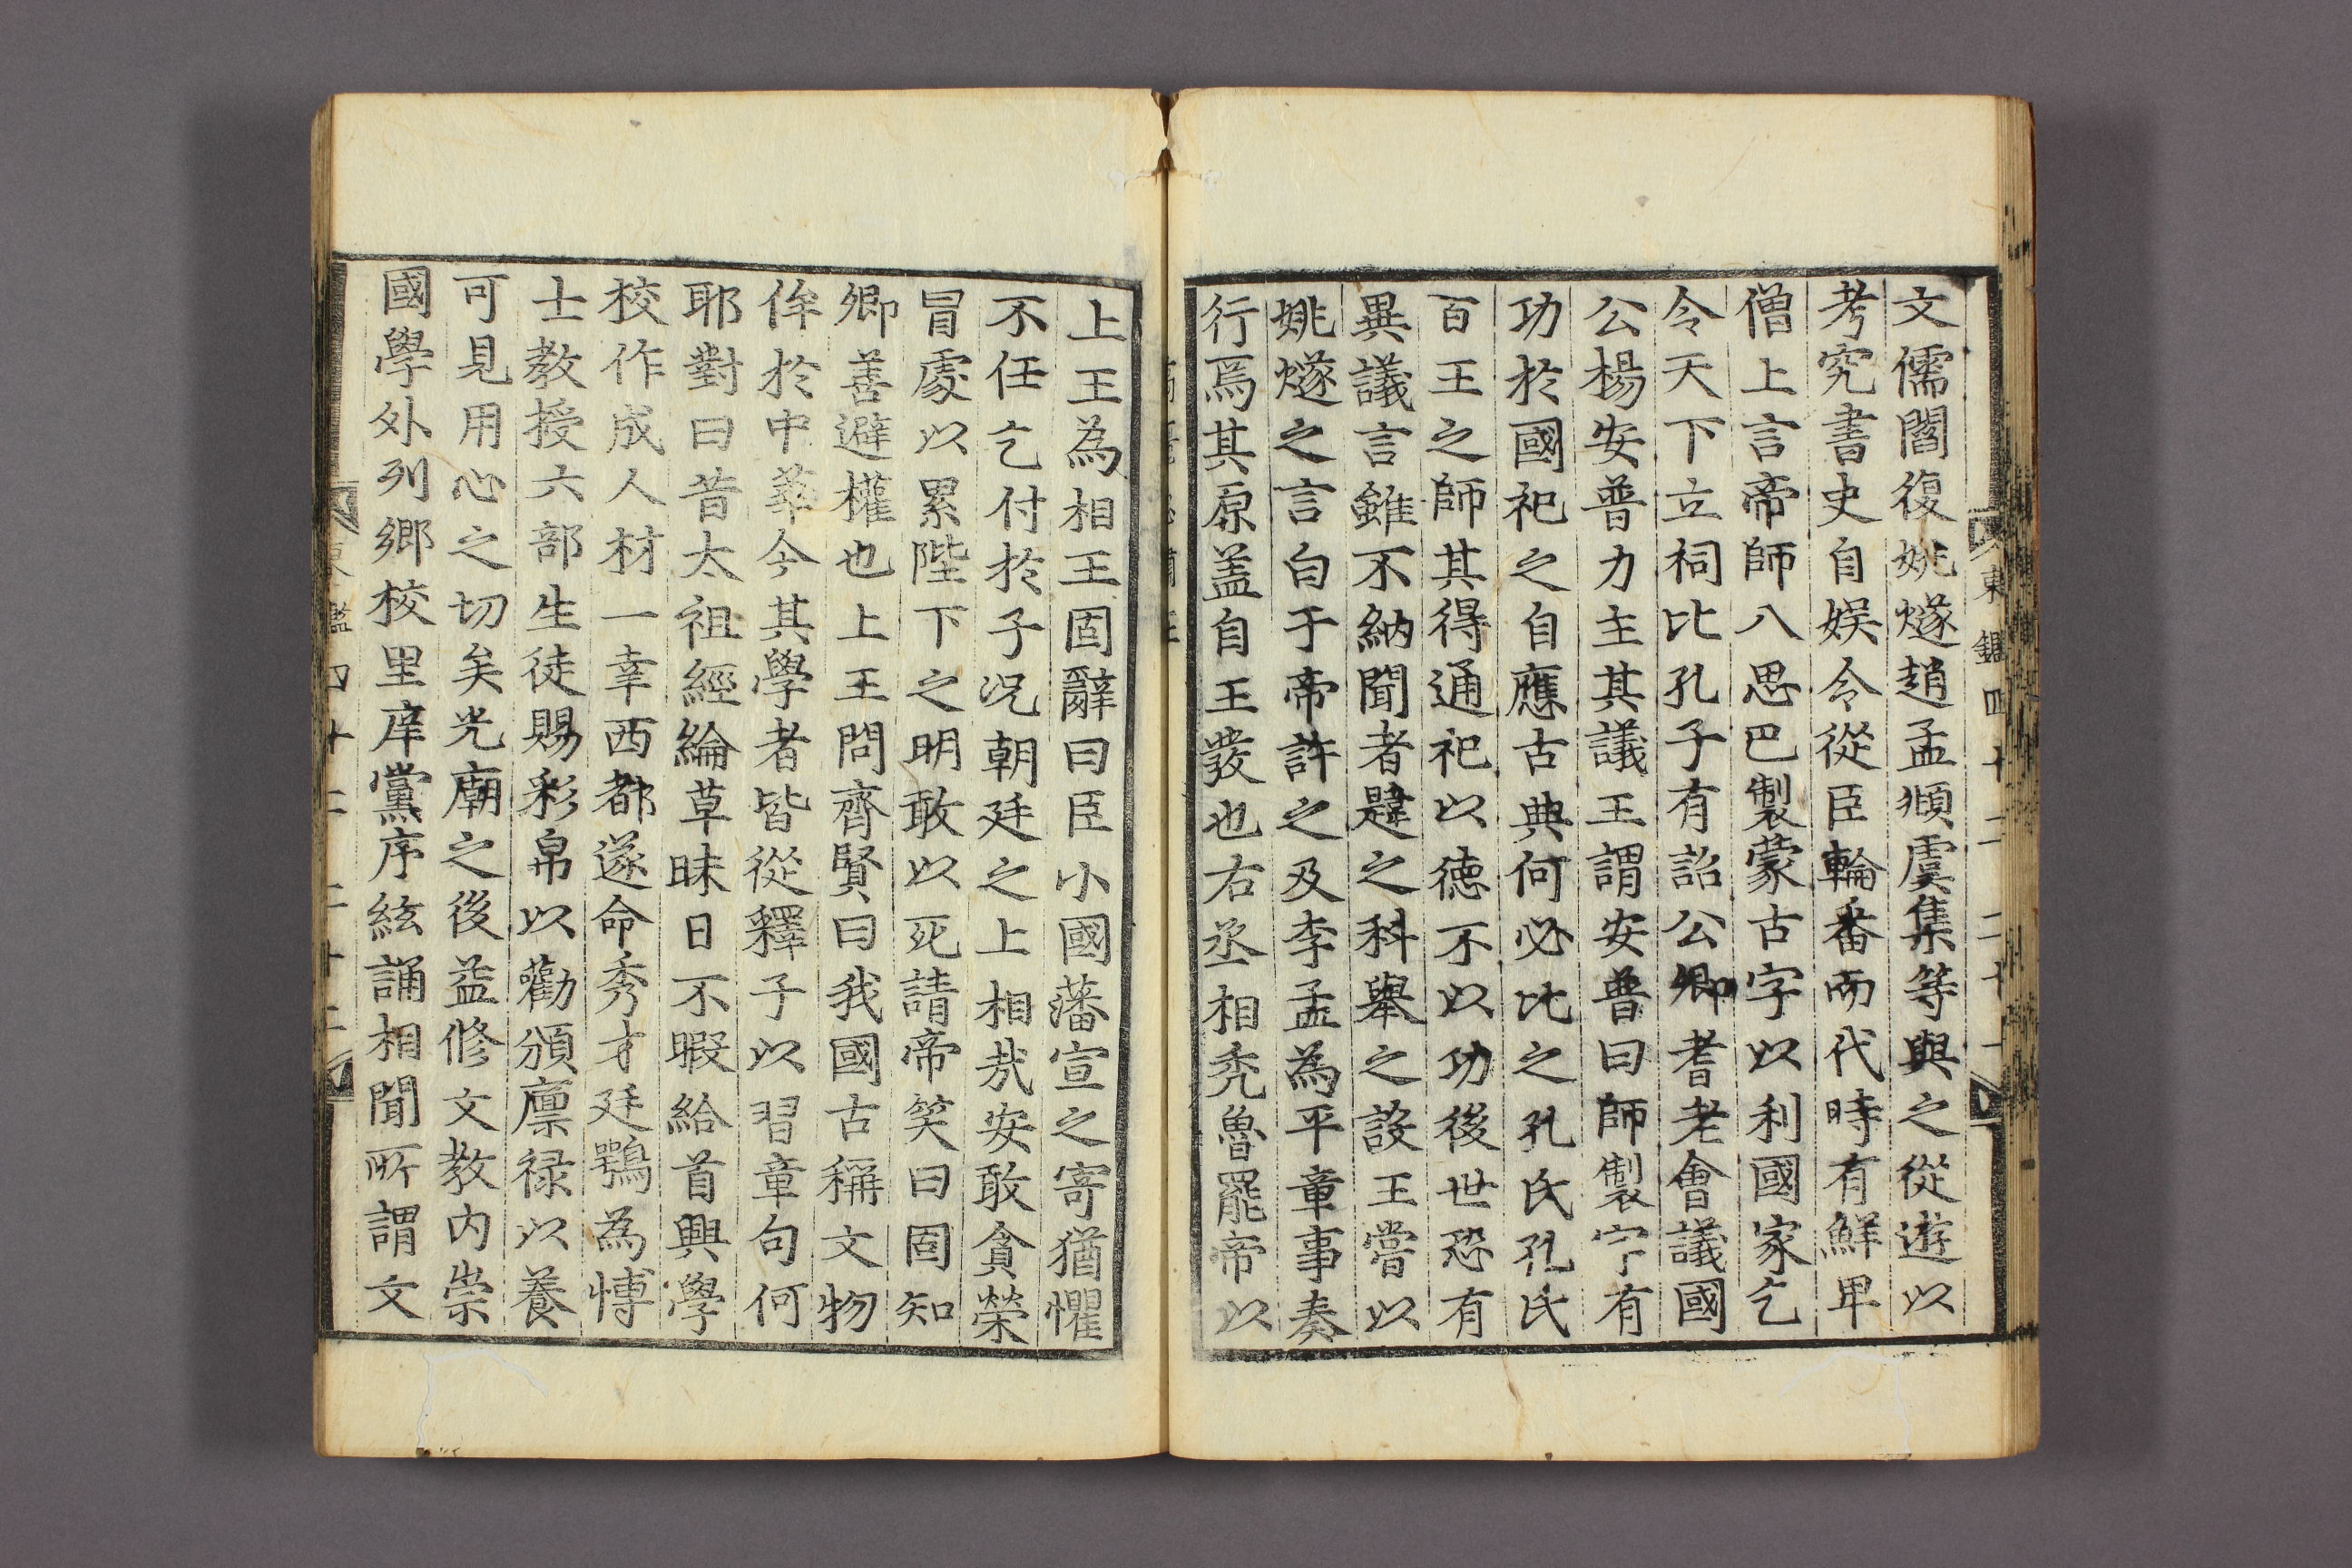 東鑑四十二 二十一
文儒閻復姚燧趙孟頫虞集等與之從遊以
考究書史自娱令從臣輪番而代時有鮮卑
僧上言帝師八思巴製蒙古字以利國家乞
令天下立祠比孔子有詔公卿耆老會議國
公楊安普力主其議王謂安普曰師製字有
功於國祀之自應古典何必比之孔氏孔氏
百王之師其得通祀以德不以功後世恐有
異議言雖不納聞者韙之科舉之設王嘗以
姚燧之言白于帝許之及李孟為平章事奏
行焉其原盖自王發也右丞相禿魯罷帝以
上王為相王固辭曰臣小國藩宣之寄猶懼
不任乞付於子况朝廷之上相哉安敢貪榮
冒處以累陛下之明敢以死請帝笑曰固知
卿善避權也上王問齊賢曰我國古稱文物
侔於中華今其學者皆從釋子以習章句何
耶對曰昔太祖經綸草昧日不暇給首興學
校作成人材一幸西都遂命秀才廷鶚為博
士教授六部生徒賜彩帛以勸頒廪禄以養
可見用心之切矣光廟之後益修文教内崇
國學外列鄉校里庠黨序絃誦相聞所謂文
東鑑四十二 二十二